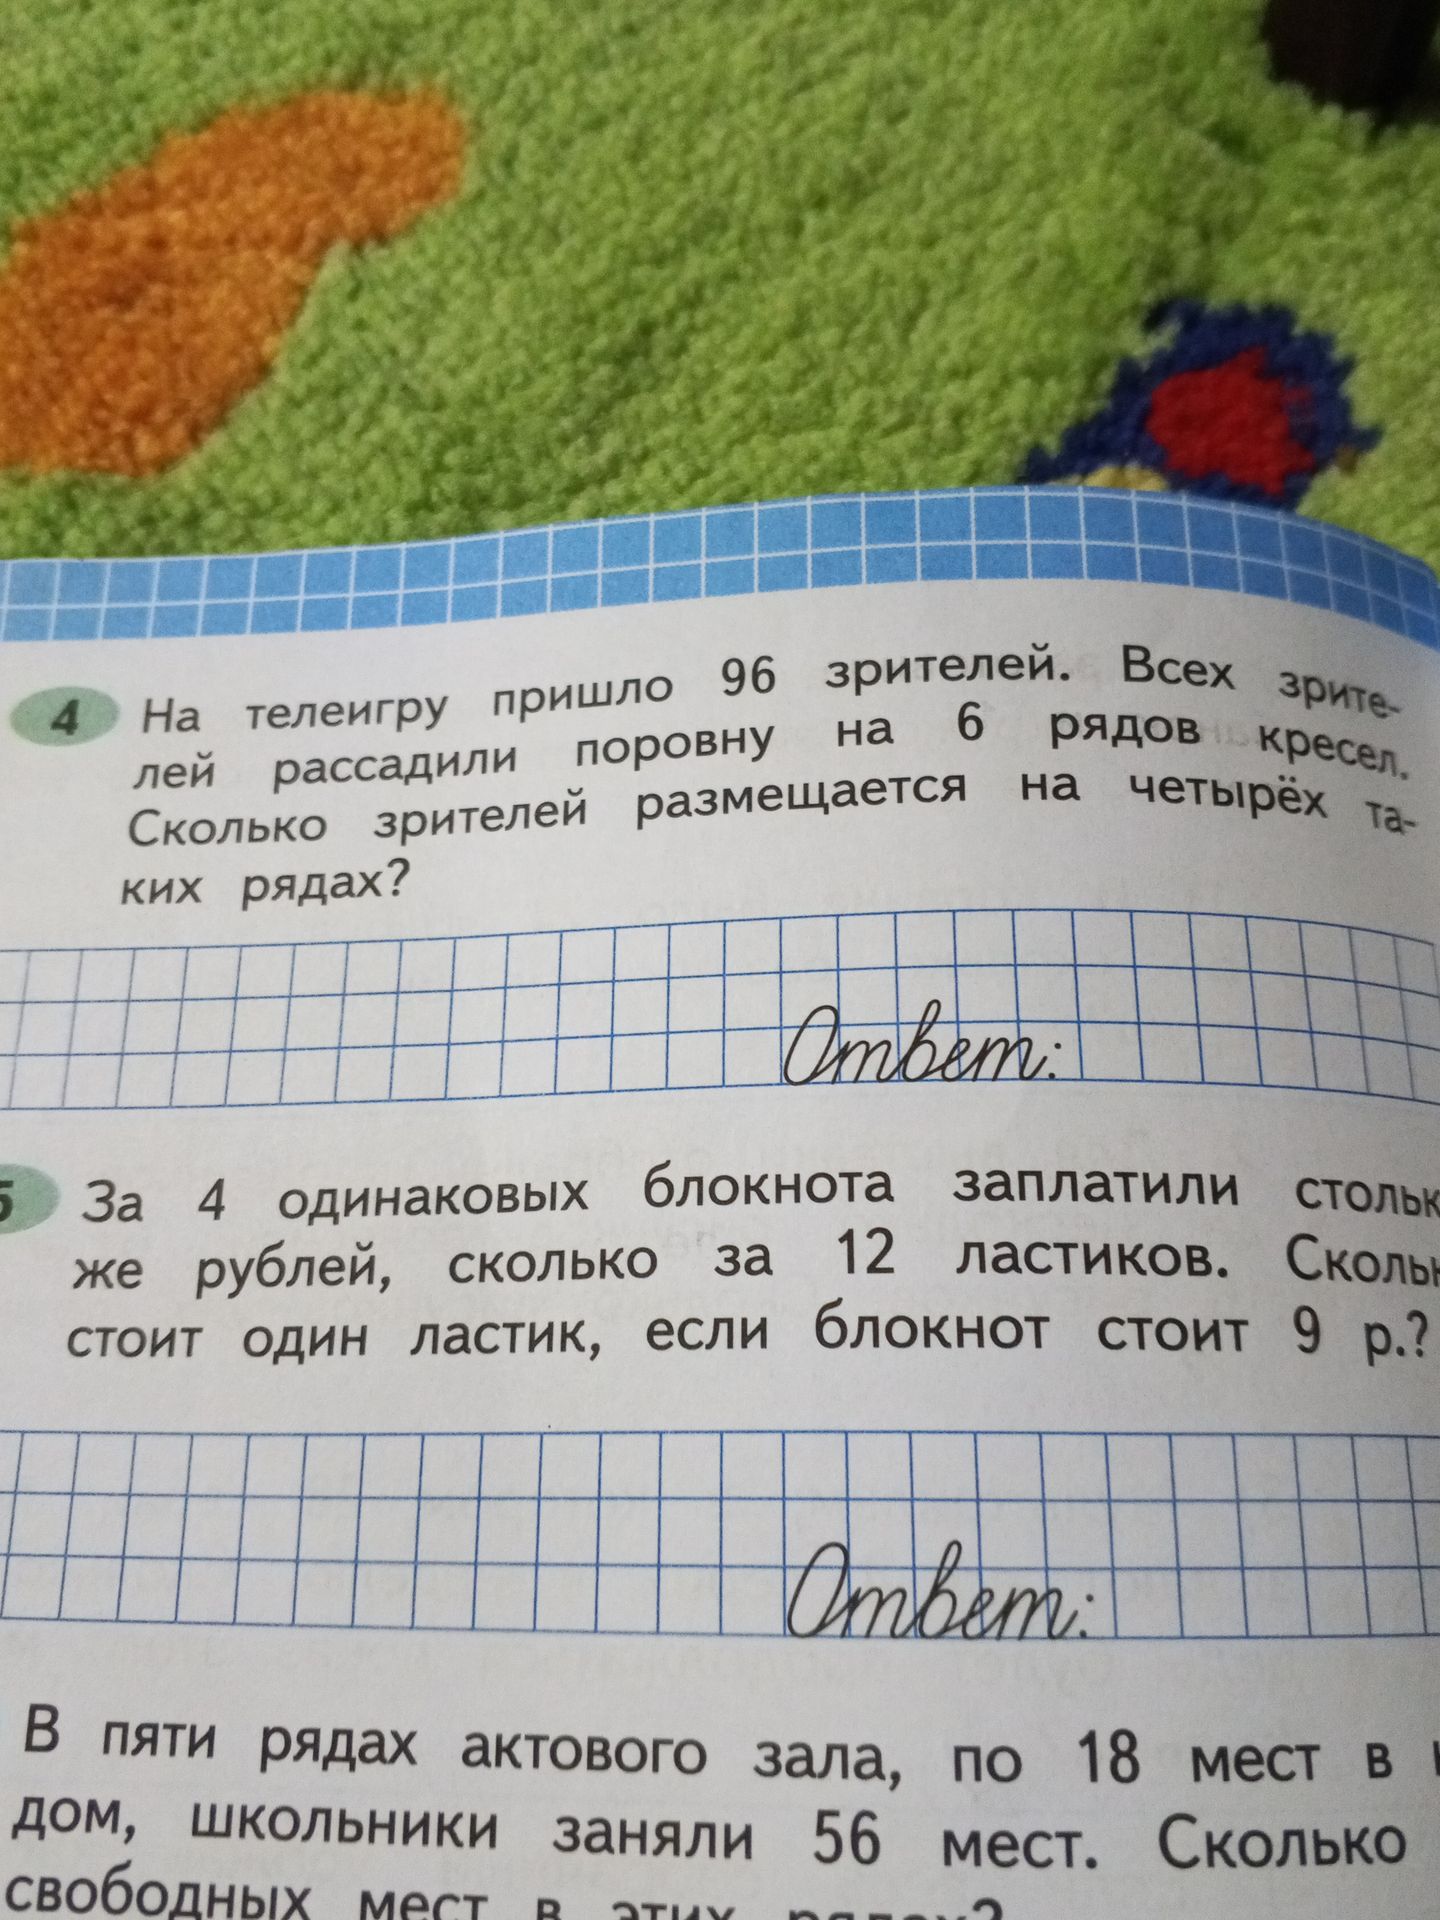 4 На телеигру пришло 96 зрителей. Всех зрите-
лей рассадили поровну на 6 рядов кресел.
Сколько зрителей размещается на четырёх та-
ких рядах?
Ответ:
5 За 4 одинаковых блокнота заплатили стольк
же рублей, сколько за 12 ластиков. Скольк
стоит один ластик, если блокнот стоит 9 р.?
Ответ:
В пяти рядах актового зала, по 18 мест в
дом, школьники заняли 56 мест. Сколько
свободных мест в этих рядах?